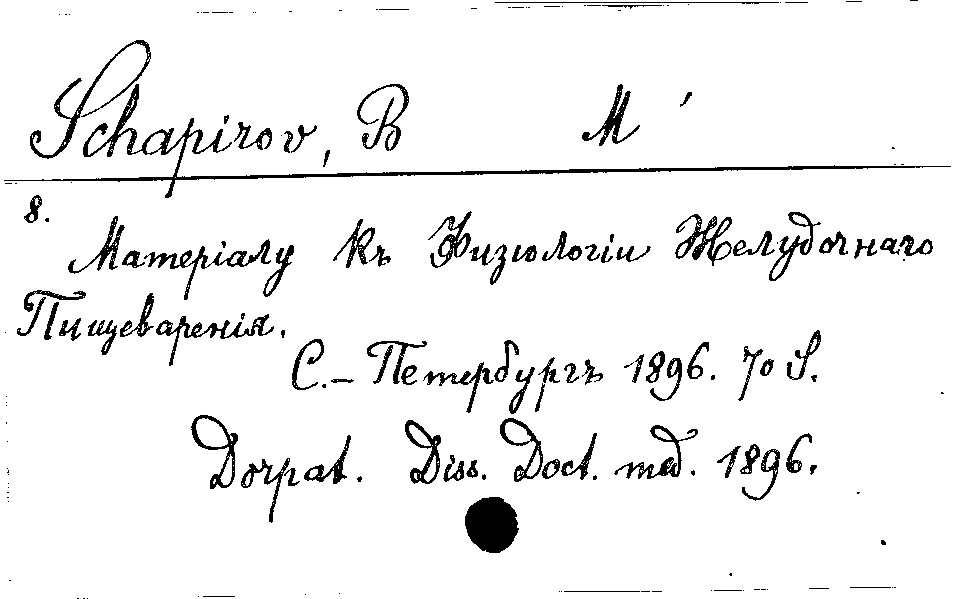 Schapirov, B M
8.
Матеріалу къ Физіологіи Желудочнаго
Пищеваренія.
С.- Петербургъ 1896. 70 S.
Dorpat. Diss. Doct. med. 1896.